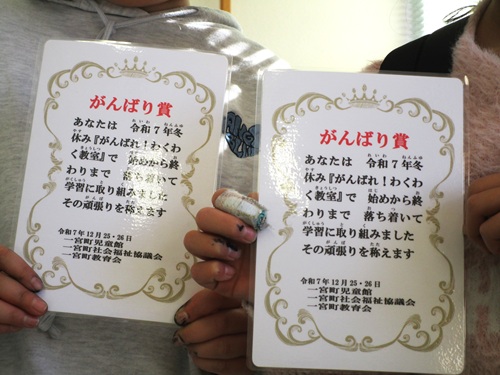 がんばり賞
あなたは 令和7年冬
休み『がんばれ！わくわ
く教室』で 始めから終
わりまで 落ち着いて
学習に取り組みました
その頑張りを称えます
令和7年12月25・26日
一宮町児童館
一宮町社会福祉協議会
一宮町教育会
がんばり賞
あなたは 令和7年冬
休み『がんばれ！わくわ
く教室』で 始めから終
わりまで 落ち着いて
学習に取り組みました
その頑張りを称えます
令和7年12月25・26日
一宮町児童館
一宮町社会福祉協議会
一宮町教育会